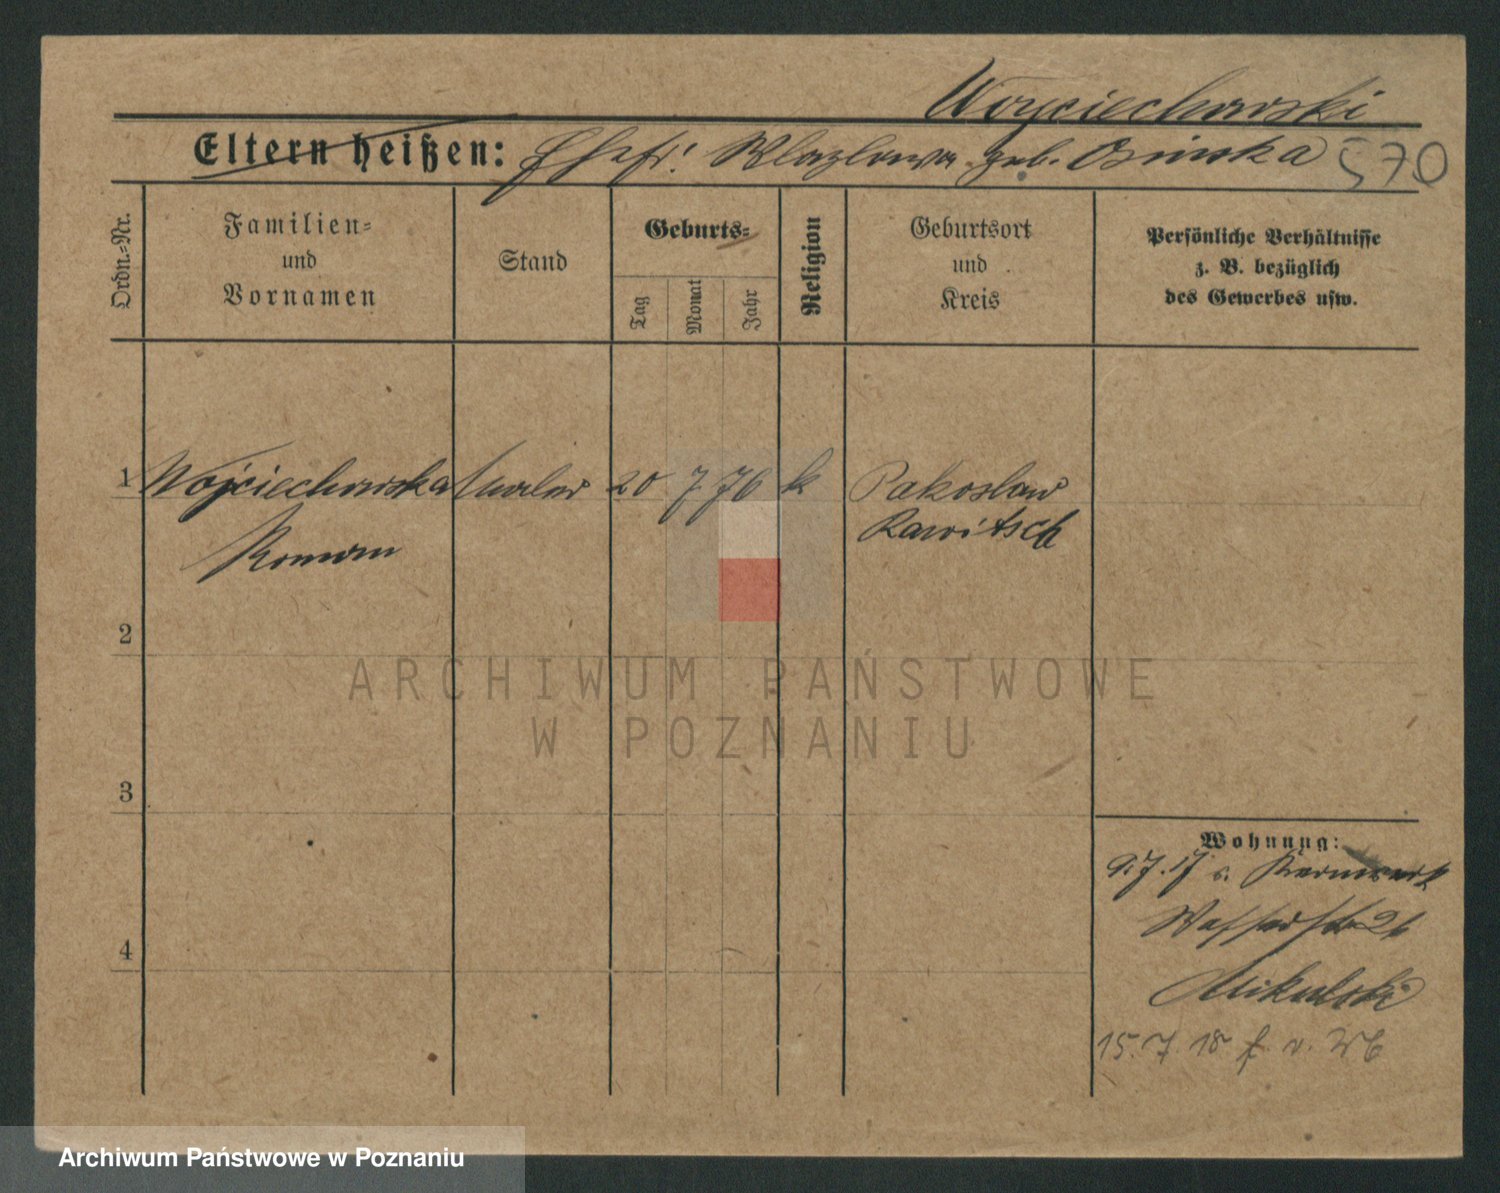 Woyciechowski
Eltern heißen: Ehefr: Wlazlawa geb. Osinska 570
Ordn.-Nr.
Familien-
und
Vornamen
Stand
Geburts-
Tag
Monat
Jahr
Religion
Geburtsort
und
Kreis
Persönliche Verhältnisse
z. B. bezüglich
des Gewerbes usw.
1 Wojciechowska Maler 20 7 76 k Pakoslaw
Roman Rawitsch
2
3
4
Wohnung:
9.7.17 v. Kernwerk
26
Mikulski
15.7.18 f. v.
ARCHIWUM PAŃSTWOWE
W POZNANIU
Archiwum Państwowe w Poznaniu